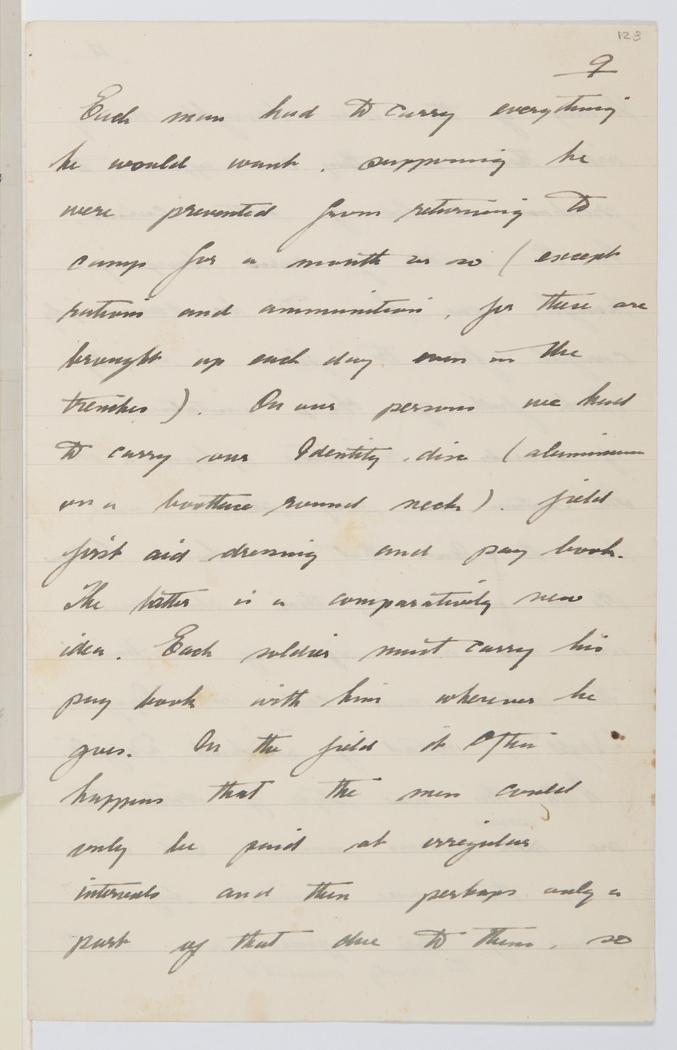 123
9
Each man had to carry everything
he would want, supposing he
were prevented from returning to
camp for a month or so (except
rations and ammunition, for these are
brought up each day even in the
trenches). On our persons we had
to carry our Identity disc (aluminium
on a bootlace round neck). field
first aid dressing and pay book.
The latter is a comparatively new
idea. Each soldier must carry his
pay book with him wherever he
goes. In the field it often
happens that the men could
only be paid at irregular
intervals and then perhaps only a
part of that due to them, so